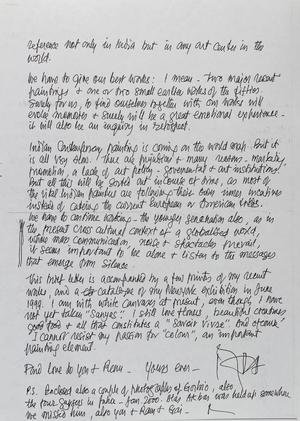 reference not only in India but in any art center in the
world.
We have to give our best works: I mean - Two major recent
paintings + one or two small earlier works of the fifties.
Surely for us, to find ourselves together with our works will
evoke memories & surely will be a great emotional experience -
it will also be an inquiry in retrospect.
Indian Contemporary painting is coming on the world map. But it
is all very slow. There are prejudices & many reasons - marketing,
promotion, a lack of art policy - governmental + art institutions.
but all this will be sorted out in course of time, as most of
the vital Indian painters are following their own inner
instead of catering the current European or American
We have to continue working - the younger generation also, as in
the present cross cultural context of a globalised world,
where more communication, noise & spectacles prevail,
it seems important to be alone & listen to the messages
that emerge from silence.
This letter is accompanied by a few prints of my recent
works, and a catalogue of my New York exhibition in June
1999. I am with white canvases at present, even though, I have
not yet taken "Sanyas"! I still love flowers, beautiful creatures
good food & all that constitutes a "Savoir Vivre". And of course
I cannot resist my passion for "colour", an important
painting element.
Fond love to you & Renu - Yours ever -
P.S. Enclosed also a couple of photographs of Gorbio, also,
the four - Jan. 2000. Alas Akbar was held up somewhere
we missed him, also you & Ram & Gai -